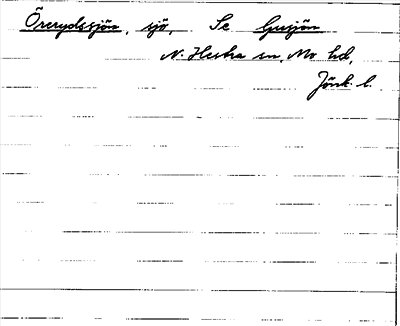 Örerydssjön, sjö, Se Ijusjön
N. Hestra sn, Mo hd,
Jönk. l.